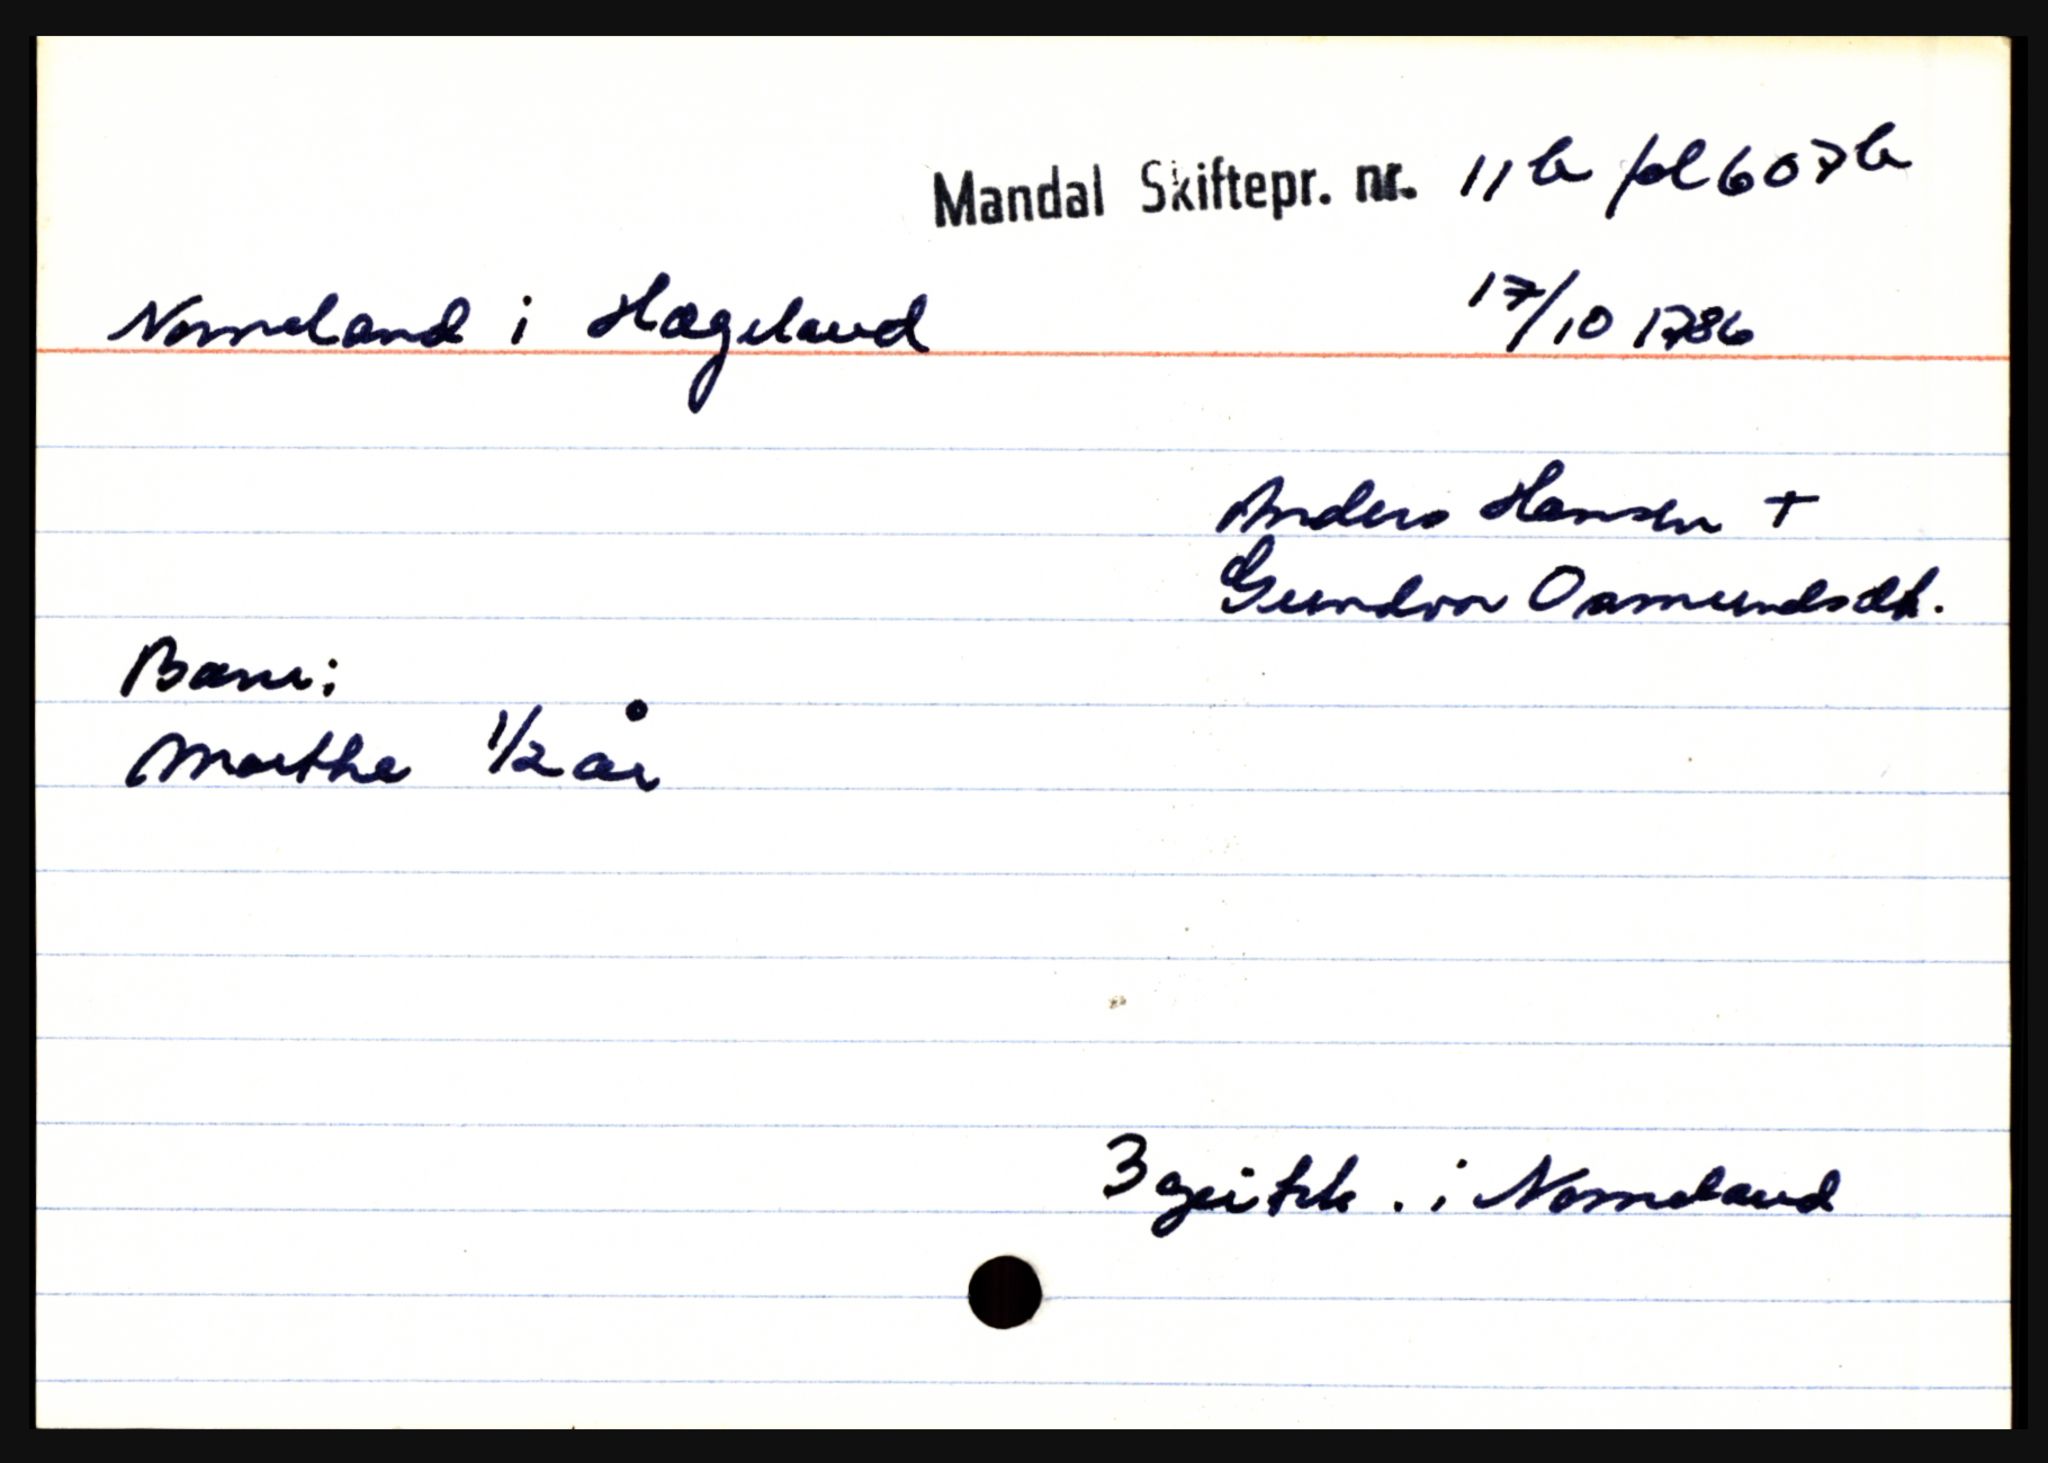 Mandal Skiftepr. nr. 11b fol 607b
Nomeland i Hægeland 17/10 1786
Anders Hansen +
Gundvor Osmundsdt.
Barn:
Marthe 1/2 år
3 . i Nomeland